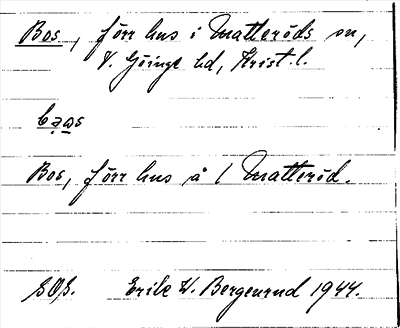 Bos, förr hus i Matteröds sn,
V. Göinge hd, Krist. l.
bas
Bos, förr hus å 1 Matteröd.
SOS. Erik W. Bergenrud 1944.